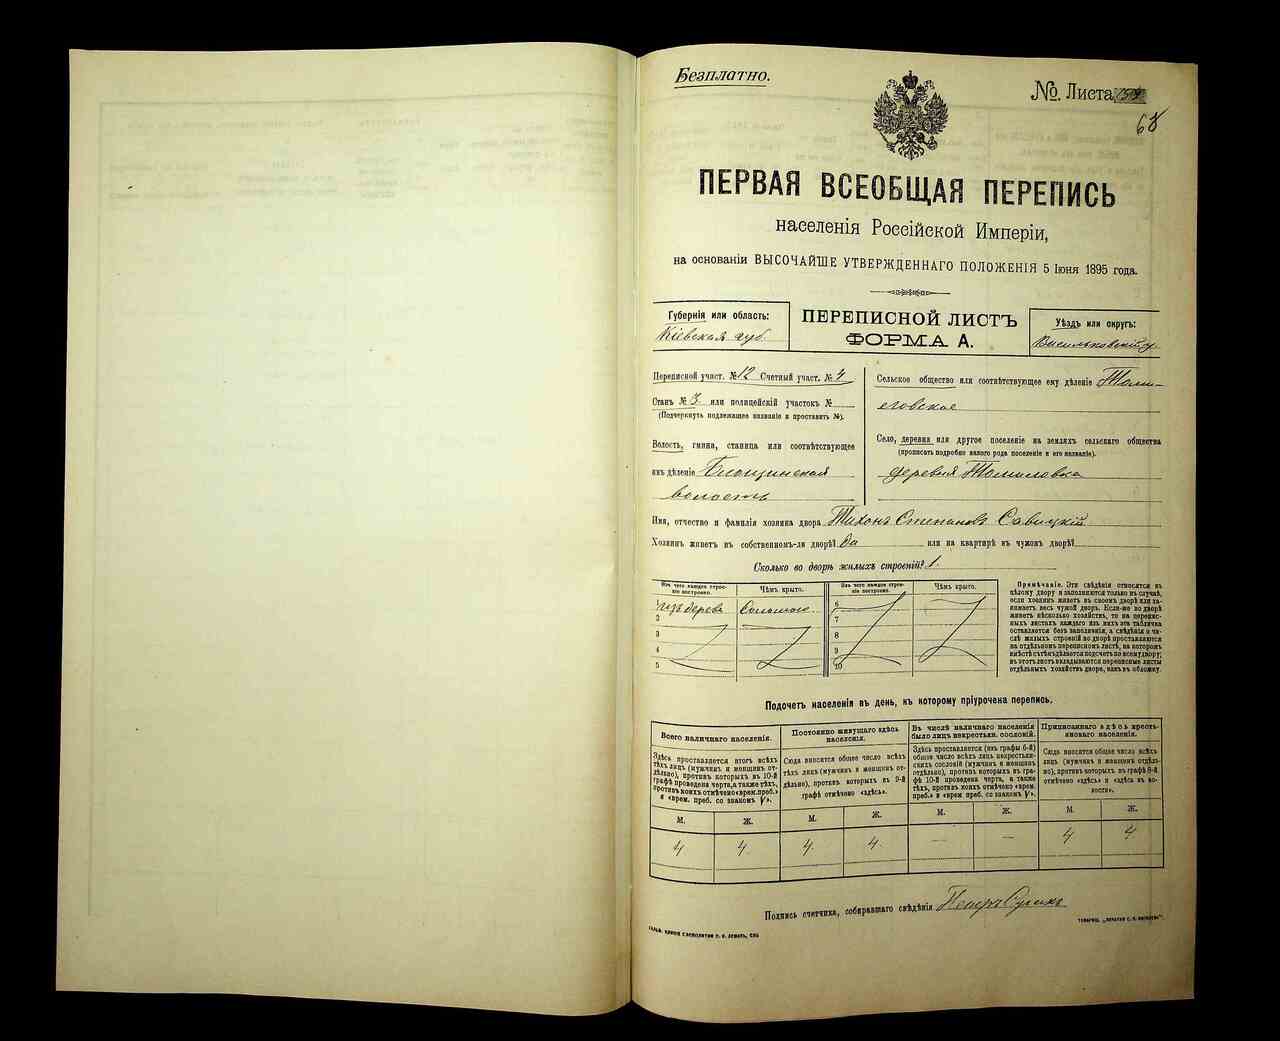 Безплатно.
№. Листа 159
68
ПЕРВАЯ ВСЕОБЩАЯ ПЕРЕПИСЬ
населенія Россійской Имперіи,
на основаніи ВЫСОЧАЙШЕ УТВЕРЖДЕННАГО ПОЛОЖЕНІЯ 5 Іюня 1895 года.
Губернія или область:
Кіевская губ.
ПЕРЕПИСНОЙ ЛИСТЪ
ФОРМА А.
Уѣздъ или округъ:
Васильковскій у.
Переписной участ. № 12 Счетный участ. № 4
Станъ № 3 или полицейскій участокъ №
(Подчеркнуть подлежащее названіе и проставить №).
Волость, гмина, станица или соотвѣтствующее
имъ дѣленіе Блощинская
волость
Сельское общество или соотвѣтствующее ему дѣленіе Томи-
ловское
Село, деревня или другое поселеніе на земляхъ сельскаго общества
(прописать подробно какого рода поселеніе и его названіе).
деревня Томиловка
Имя, отчество и фамилія хозяина двора Тихонъ Степановъ Савицкій
Хозяинъ живетъ въ собственномъ-ли дворѣ? да или на квартирѣ въ чужомъ дворѣ?
Сколько во дворѣ жилыхъ строеній? 1.
Изъ чего каждое строеніе построено. Чѣмъ крыто. Изъ чего каждое строеніе построено. Чѣмъ крыто.
1 изъ дерева Соломою. 6
2 7
3 8
4 9
5 10
Примѣчаніе. Эти свѣдѣнія относятся къ
цѣлому двору и заполняются только въ случаѣ,
если хозяинъ живетъ въ своемъ дворѣ или за-
нимаетъ весь чужой дворъ. Если-же во дворѣ
живетъ нѣсколько хозяйствъ, то на перепис-
ныхъ листахъ каждаго изъ нихъ эта табличка
оставляется безъ заполненія, а свѣдѣнія о чи-
слѣ жилыхъ строеній во дворѣ проставляются
на отдѣльномъ переписномъ листѣ, на которомъ
вмѣстѣ съ тѣмъ дѣлается подсчетъ по всему двору;
въ этотъ листъ вкладываются переписные листы
отдѣльныхъ хозяйствъ двора, какъ въ обложку.
Подсчетъ населенія въ день, къ которому пріурочена перепись.
Всего наличнаго населенія.
Здѣсь проставляется итогъ всѣхъ
тѣхъ лицъ (мужчинъ и женщинъ от-
дѣльно), противъ которыхъ въ 10-й
графѣ проведена черта, а также тѣхъ,
противъ коихъ отмѣчено «врем. преб.»
и «врем. преб. со знакомъ V».
Постоянно живущаго здѣсь
населенія.
Сюда вносится общее число всѣхъ
тѣхъ лицъ (мужчинъ и женщинъ от-
дѣльно), противъ которыхъ въ 9-й
графѣ отмѣчено «здѣсь».
Въ числѣ наличнаго населенія
было лицъ некрестьян. сословій.
Здѣсь проставляется (изъ графы 6-й)
общее число всѣхъ лицъ некрестьян-
скихъ сословій (мужчинъ и женщинъ
отдѣльно), противъ которыхъ въ гра-
фѣ 10-й проведена черта, а также
тѣхъ, противъ коихъ отмѣчено «врем.
преб.» и «врем. преб. со знакомъ V».
Приписаннаго здѣсь кресть-
янскаго населенія.
Сюда вносится общее число всѣхъ
лицъ (мужчинъ и женщинъ отдѣль-
но), противъ которыхъ въ графѣ 8-й
отмѣчено «здѣсь» и «здѣсь въ во-
лости».
М. Ж. М. Ж. М. Ж. М. Ж.
4 4 4 4 — — 4 4
Подпись счетчика, собиравшаго свѣдѣнія Петръ